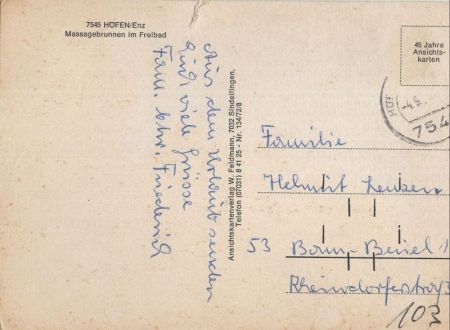 7545 HÖFEN/Enz
Massagebrunnen im Freibad
Aus dem Urlaub senden
Euch viele Grüsse
Fam. Chr. Friederich
Ansichtskartenverlag W. Feldmann, 7032 Sindelfingen,
Telefon (07031) 8 41 25 - Nr. 134/72/8
45 Jahre
Ansichts-
karten
HÖF
-4.9.
754
Familie
Helmut
53 Bonn-Beuel 1
Rheindorferstraß
103